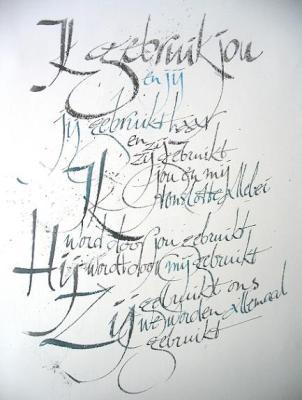 Ik gebruik jou
en jij
jij gebruikt haar
en zij
zij gebruikt
jou en mij
Ik
word door jou gebruikt
Hij wordt door mij gebruikt
Zij gebruikt ons
we worden allemaal
gebruikt